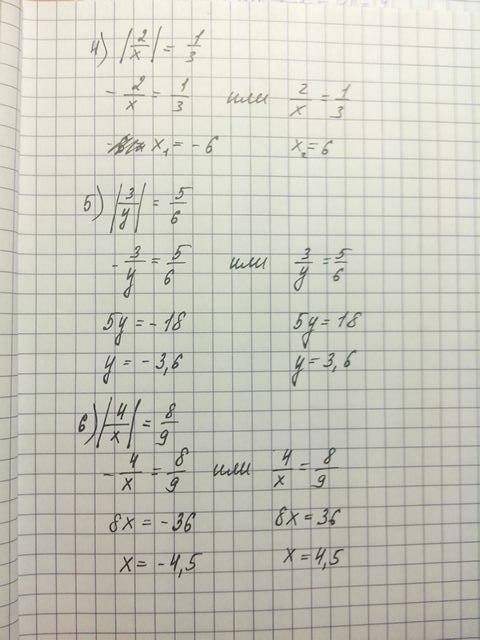 4) |2/x| = 1/3
- 2/x = 1/3 или 2/x = 1/3
x₁ = - 6 x₂ = 6
5) |3/y| = 5/6
- 3/y = 5/6 или 3/y = 5/6
5y = - 18 5y = 18
y = - 3,6 y = 3,6
6) |4/x| = 8/9
- 4/x = 8/9 или 4/x = 8/9
8x = - 36 8x = 36
x = - 4,5 x = 4,5